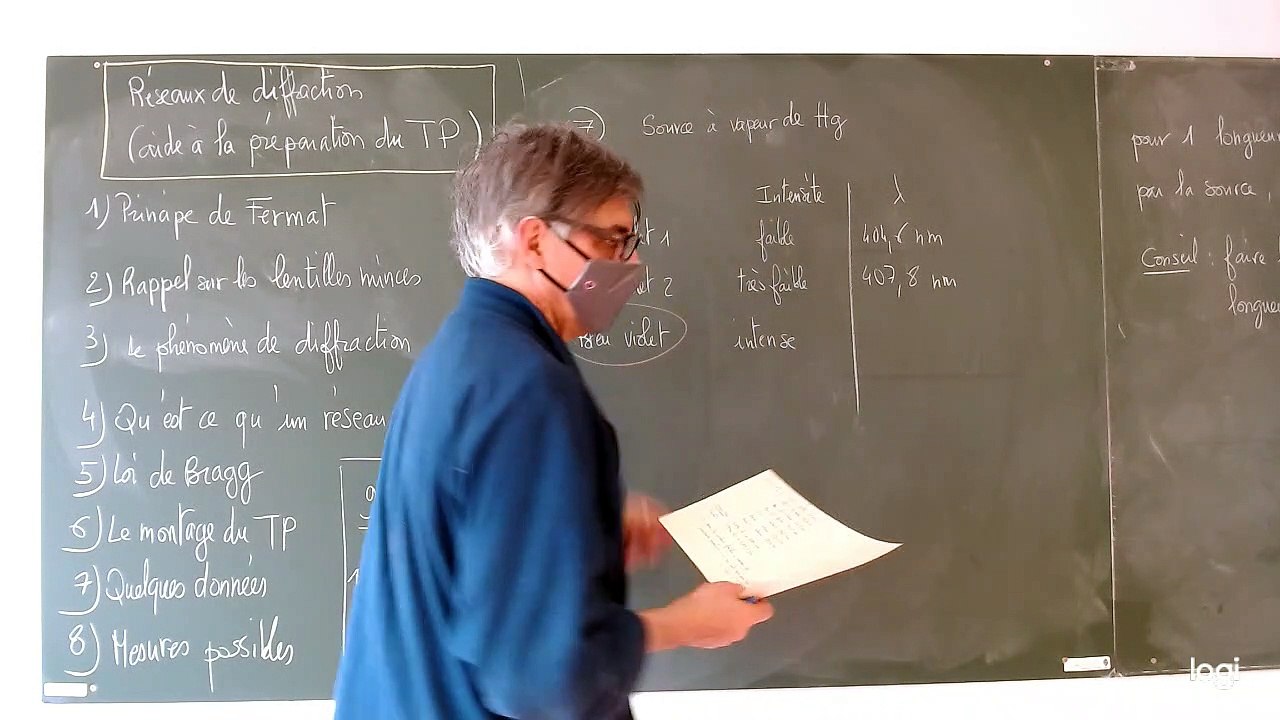 Réseaux de diffraction
(aide à la préparation du TP)
1) Principe de Fermat
2) Rappel sur les lentilles minces
3) Le phénomène de diffraction
4) Qu'est ce qu'un réseau
5) Loi de Bragg
6) Le montage du TP
7) Quelques données
8) Mesures possibles
7) Source à vapeur de Hg
Intensité λ
1 faible 404,6 nm
2 très faible 407,8 nm
bleu violet intense
pour 1
par la source,
Conseil : faire
logi